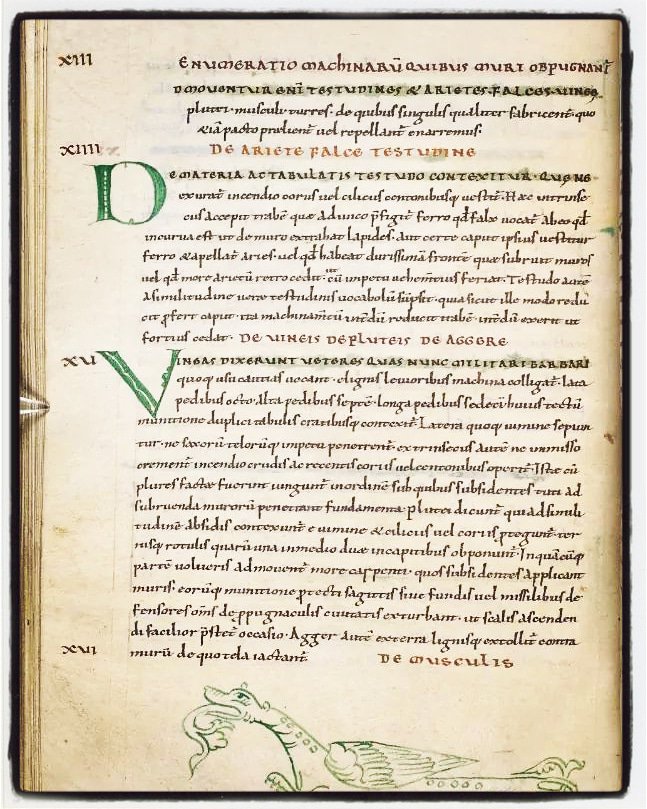 XIII ENUMERATIO MACHINARŪ QUIBUS MURI OBPUGNANT̄
DMOVENTUR ENĪ TESTUDINES & ARIETES·FALCES·VINEĘ
plutei· musculi· turres· de quibus singulis qualiter fabricent̄· quo
&iā pacto prelient̄ uel repellant̄ enarremus·
XIIII DE ARIETE FALCE TESTUDINE
DE MATERIA AC TABULATIS TESTUDO CONTEXITUR· QUĘ NE
exurat̄ incendio coriis uel ciliciis centonibusq; uestit̄· Haec intrinse
cus accepit trabē que adunco p̄figit̄ ferro qd̄ falx vocat̄ ab eo qd̄
incurua est ut de muro extrahat lapides· aut certe caput ipsius uestitur
ferro &apellat̄ aries· uel qd̄ habeat durissimā frontē quae subruit muros
uel qd̄ more arietū retro cedit· ut cū impetu uehementius feriat· Testudo autē
A similitudine uere testudinis uocabolū sūpsit· quia sicut ille modo redu
cit p̄fert caput· ita machinam̄tū int̄dū reducit trabē· int̄dū exerit ut
fortius cedat· DE VINEIS DE PLUTEIS DE AGGERE
XV VINEAS DIXERUNT VETERES QUAS NUNC MILITARI BARBARI
quoq; usu cautias uocant· elignis leuioribus machina colligat̄· lata
pedibus octo· Alta pedibus septē· longa pedibus sedecī· huius tectū
munitione duplici tabulis cratibusq; contexit̄· Latera quoq; uimine sepiun
tur· ne saxorū telorūq; impetu penetrent̄· extrinsecus autē ne inmisso
crement̄ incendio crudis ac recentis coriis uel centonibus operit̄· Istae cū
plures factae fuerint iungunt̄ in ordinē sub quibus subsidentes tuti ad
subruenda murorū penetrant fundamenta· Plutei dicunt̄ qui ad simili
tudinē absidis contexunt̄ e uimine &ciliciis uel coriis p̱tegunt̄· ter
nisq; rotulis quarū una in medio duae in capitibus obponunt̄· In quācūq;
partē volueris admouent̄ more carpenti· quos subsidentes applicant
muris· eorūq; munitione p̱tecti sagittis siue fundis uel missilibus de
fensores om̄s de p̱pugnaculis ciuitatis exturbant· ut scalis ascenden
di facilior p̄stet̄ occasio· Agger autē ex terra lignisq; extollit̄ contra
murū de quo tela iactant̄·
XVI DE MUSCULIS